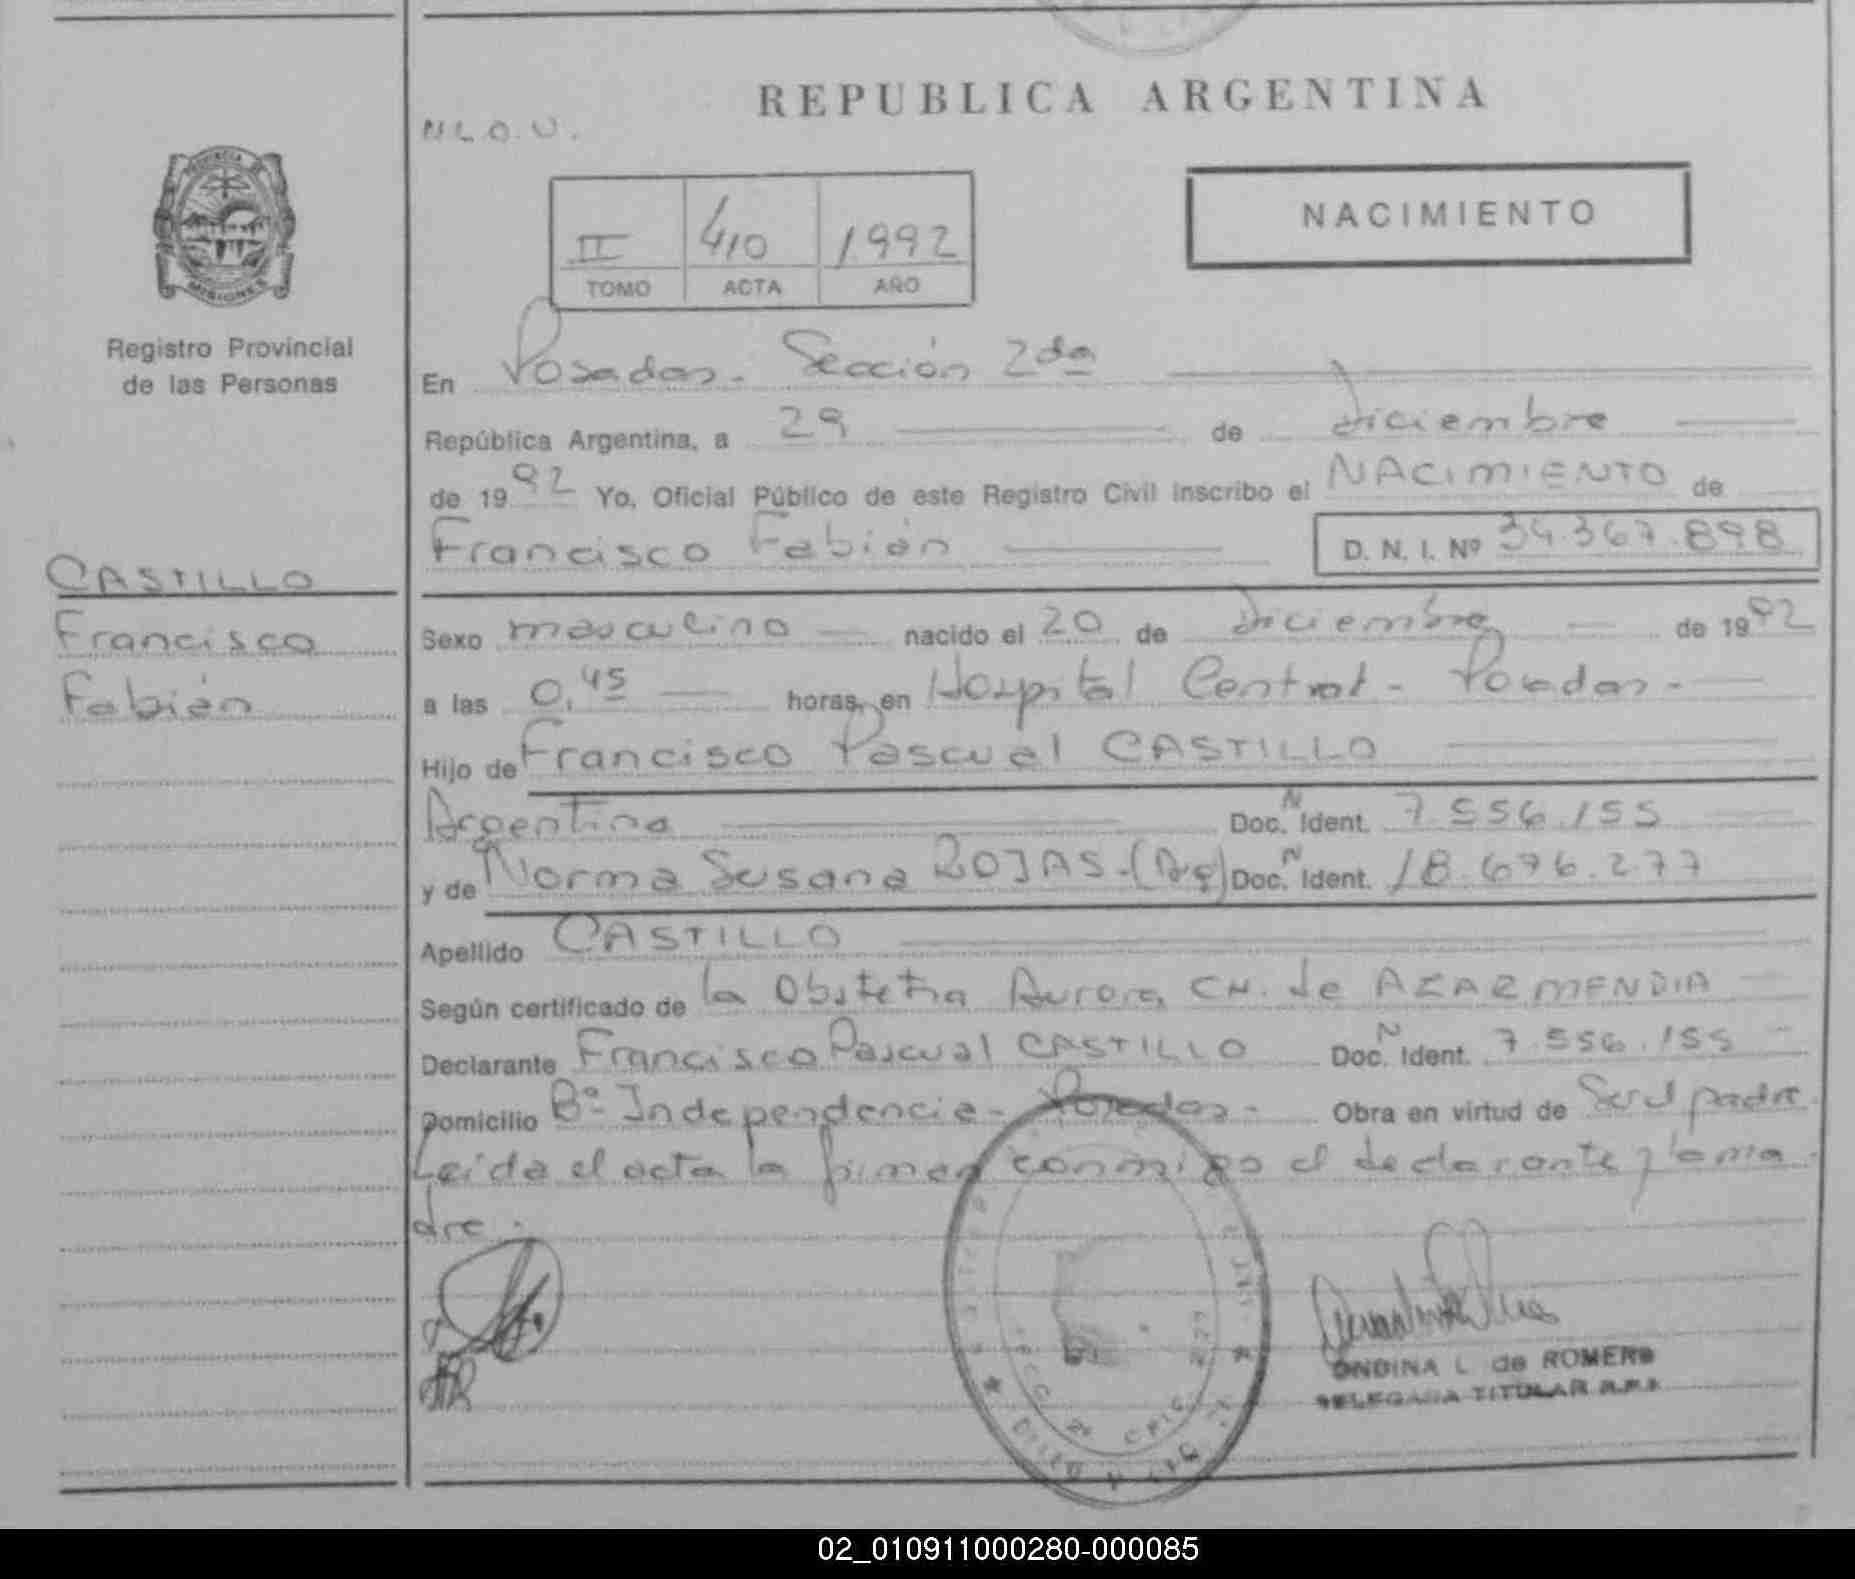 REPUBLICA ARGENTINA
N L O . U .
II 410 1992
TOMO ACTA AÑO
NACIMIENTO
PROVINCIA
MISIONES
Registro Provincial
de las Personas
CASTILLO
Francisco
Fabián
En Posadas - Sección 2da
República Argentina, a 29 de diciembre
de 19 92 Yo, Oficial Público de este Registro Civil inscribo el NACIMIENTO de
Francisco Fabián D. N. I. Nº 34.367.898
Sexo masculino nacido el 20 de diciembre de 19 92
a las 0,45 horas, en Hospital Central - Posadas -
Hijo de Francisco Pascual CASTILLO
Argentino Doc. N Ident. 7.556.155
y de Norma Susana ROJAS - (Arg) Doc. N Ident. 18.676.277
Apellido CASTILLO
Según certificado de la Obstetra Aurora CH. de AZARMENDIA
Declarante Francisco Pascual CASTILLO Doc. N Ident. 7.556.155
Domicilio Bº Independencia - Posadas - Obra en virtud de Ser el padre.
Leída el acta la firman conmigo el declarante y la ma
dre.
ONDINA L. de ROMERO
DELEGADA TITULAR R.P.P.
02_010911000280-000085